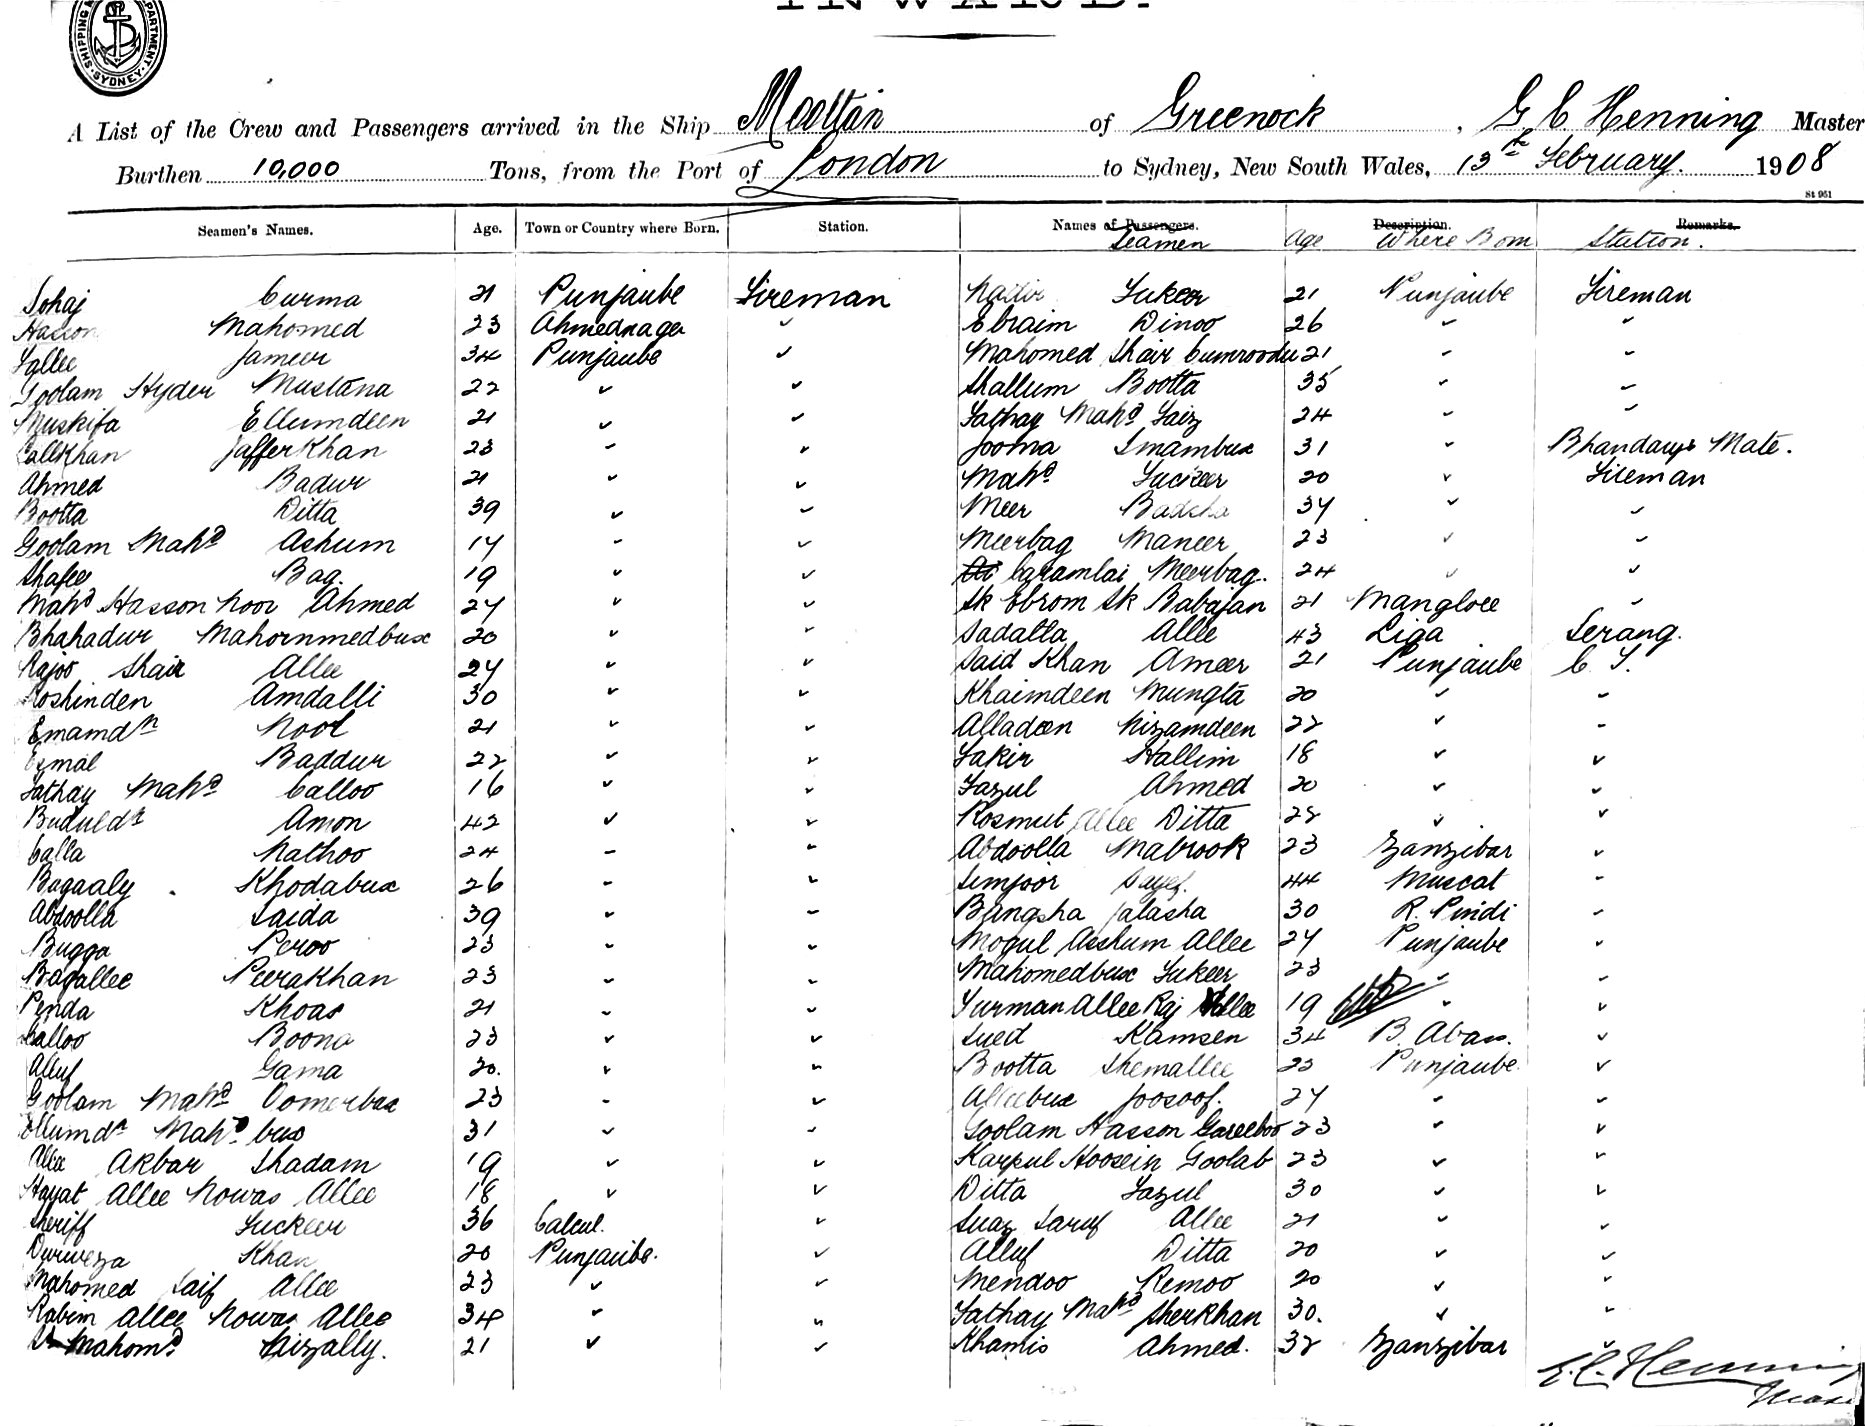 INWARD.
SHIPPING DEPARTMENT SYDNEY
A List of the Crew and Passengers arrived in the Ship Mooltan of Greenock, G C Henning Master
Burthen 10,000 Tons, from the Port of London to Sydney, New South Wales, 13th February. 1908
St 951
Seamen's Names. Age. Town or Country where Born. Station. Names of Passengers. Seamen Age Description. Where Born Remarks. Station.
Sohaj Curma 21 Punjaube Fireman Nazir Fukeer 21 Punjaube Fireman
Hasson Mahomed 23 Ahmednager " Ebraim Dinoo 26 " "
Fallee Jameer 34 Punjaube " Mahomed Shair Cumroodu 21 " "
Goolam Hyder Mustana 22 " " Shallum Bootta 35 " "
Muskifa Ellumdeen 21 " " Fathay Mahd Faiz 24 " "
Callkhan Jafferkhan 23 " " Jooma Imambux 31 " Bhandarys Mate.
Ahmed Badur 21 " " Mahd Fuckeer 20 " Fireman
Bootta Ditta 39 " " Meer Badsha 34 " "
Goolam Mahd Ashum 17 " " Meerbag Maneer 23 " "
Shafee Bag. 19 " " Caramlai Meerbag. 24 " "
Mahd Hasson Noor Ahmed 27 " " Sk Ebrom Sk Babajan 21 Manglore "
Bhahadur Mahommedbux 20 " " Sadalla Allee 43 Liga Serang.
Rajoo Shair Allee 27 " " Said Khan Ameer 21 Punjaube C. T.
Roshinden Amdalli 30 " " Khaimdeen Mungta 20 " "
Emamdn Noor 21 " " Alladeen Nizamdeen 22 " "
Esmal Baddur 22 " " Fakir Hallim 18 " "
Fathay Mahd Calloo 16 " " Fazul Ahmed 20 " "
Buduldn Amon 42 " " Rosmut Allee Ditta 22 " "
Calla Nathoo 24 " " Abdoolla Mabrook 23 Zanzibar "
Bagaaly Khodabux 26 " " Sumjoor Sayef. 44 Muscat "
Abdoolla Saida 39 " " Bangsha Jalasha 30 R. Pindi "
Bugga Peroo 23 " " Mogul Asshum Allee 27 Punjaube "
Bagallee Peerakhan 23 " " Mahomedbux Fukeer 23 " "
Penda Khoas 21 " " Furman Allee Raj Allee 19 " "
Calloo Boona 23 " " Sued Kamsen 34 B. Abass. "
Alluf Gama 20. " " Bootta Shemallee 23 Punjaube "
Goolam Mahd Oomerbax 23 " " Alleebux Joosoof. 27 " "
Ellumdn Mahd bux 31 " " Goolam Hasson Gareeboo 23 " "
Allee Akbar Shadam 19 " " Karpul Hoosein Goolab 23 " "
Hayat Allee Nowas Allee 18 " " Ditta Fazul 30 " "
Sheriff Fuckeer 36 Calcul. " Suaz Saruf Allee 21 " "
Durweza Khan 20 Punjaube. " Alluf Ditta 20 " "
Mahomed Saif Allee 23 " " Mendoo Remoo 20 " "
Rabim Allee Nowas Allee 34 " " Fathay Mahd Sherkhan 30. " "
Mahomd Faizally. 21 " " Khamis Ahmed. 32 Zanzibar "
G. C. Henning